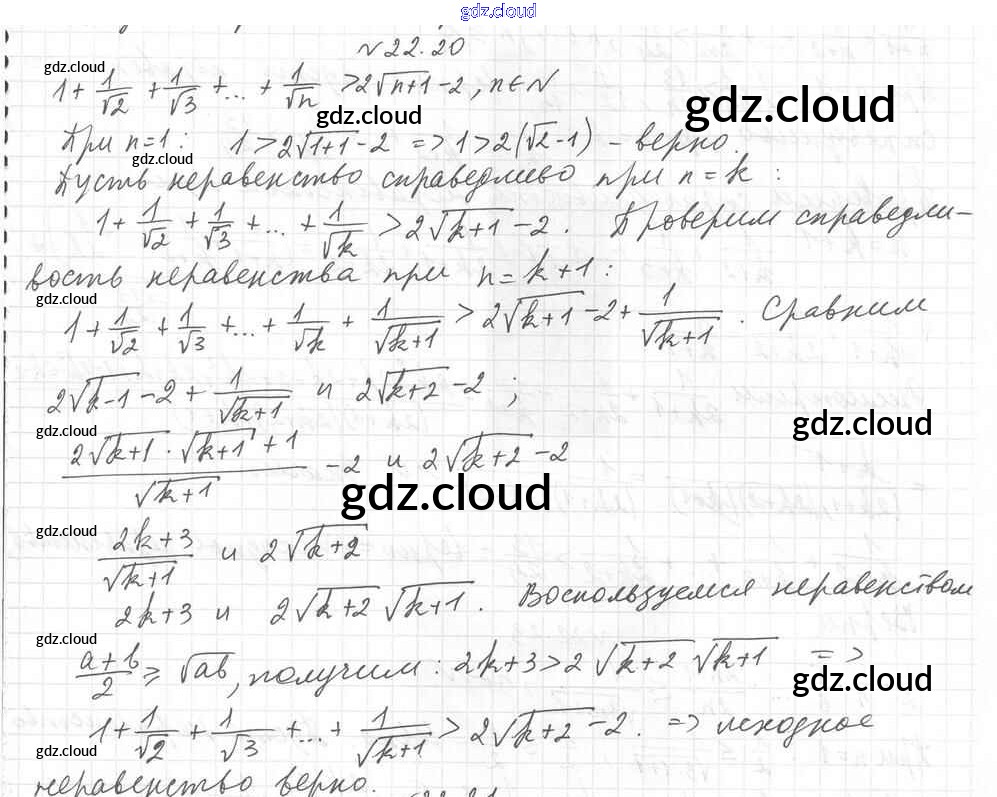 gdz.cloud
№22.20
gdz.cloud
1+1/√2+1/√3+...+1/√n>2√(n+1)-2, n∈N
gdz.cloud
gdz.cloud
При n=1: 1>2√(1+1)-2 => 1>2(√2-1) - верно.
gdz.cloud
Пусть неравенство справедливо при n=k:
1+1/√2+1/√3+...+1/√k>2√(k+1)-2. Проверим справедли-
вость неравенства при n=k+1:
gdz.cloud
1+1/√2+1/√3+...+1/√k+1/√(k+1)>2√(k+1)-2+1/√(k+1). Сравним
2√(k-1)-2+1/√(k+1) и 2√(k+2)-2;
gdz.cloud
gdz.cloud
(2√(k+1)·√(k+1)+1)/√(k+1)-2 и 2√(k+2)-2
gdz.cloud
gdz.cloud
(2k+3)/√(k+1) и 2√(k+2)
2k+3 и 2√(k+2)√(k+1). Воспользуемся неравенством
gdz.cloud
(a+b)/2≥√ab, получим: 2k+3>2√(k+2)√(k+1) =>
gdz.cloud
1+1/√2+1/√3+...+1/√(k+1)>2√(k+2)-2. => исходное
gdz.cloud
неравенство верно.
22.21